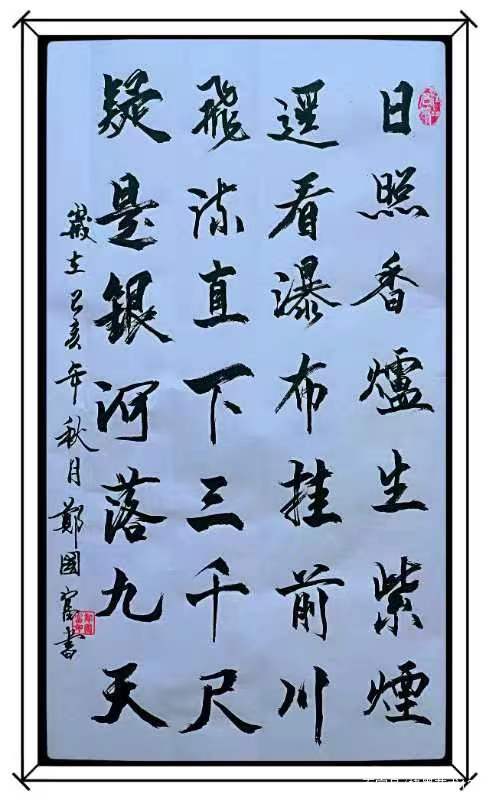 日照香爐生紫煙
遥看瀑布挂前川
飛流直下三千尺
疑是銀河落九天
歲在己亥年秋月鄭國富書